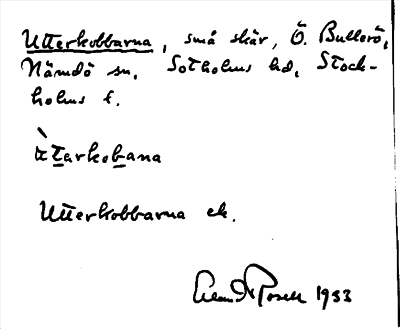 Utterkobbarna, små skär, Ö. Bullerö,
Nämdö sn, Sotholms hd, Stock-
holms l.
ùtarkobana
Utterkobbarna ek.
1933